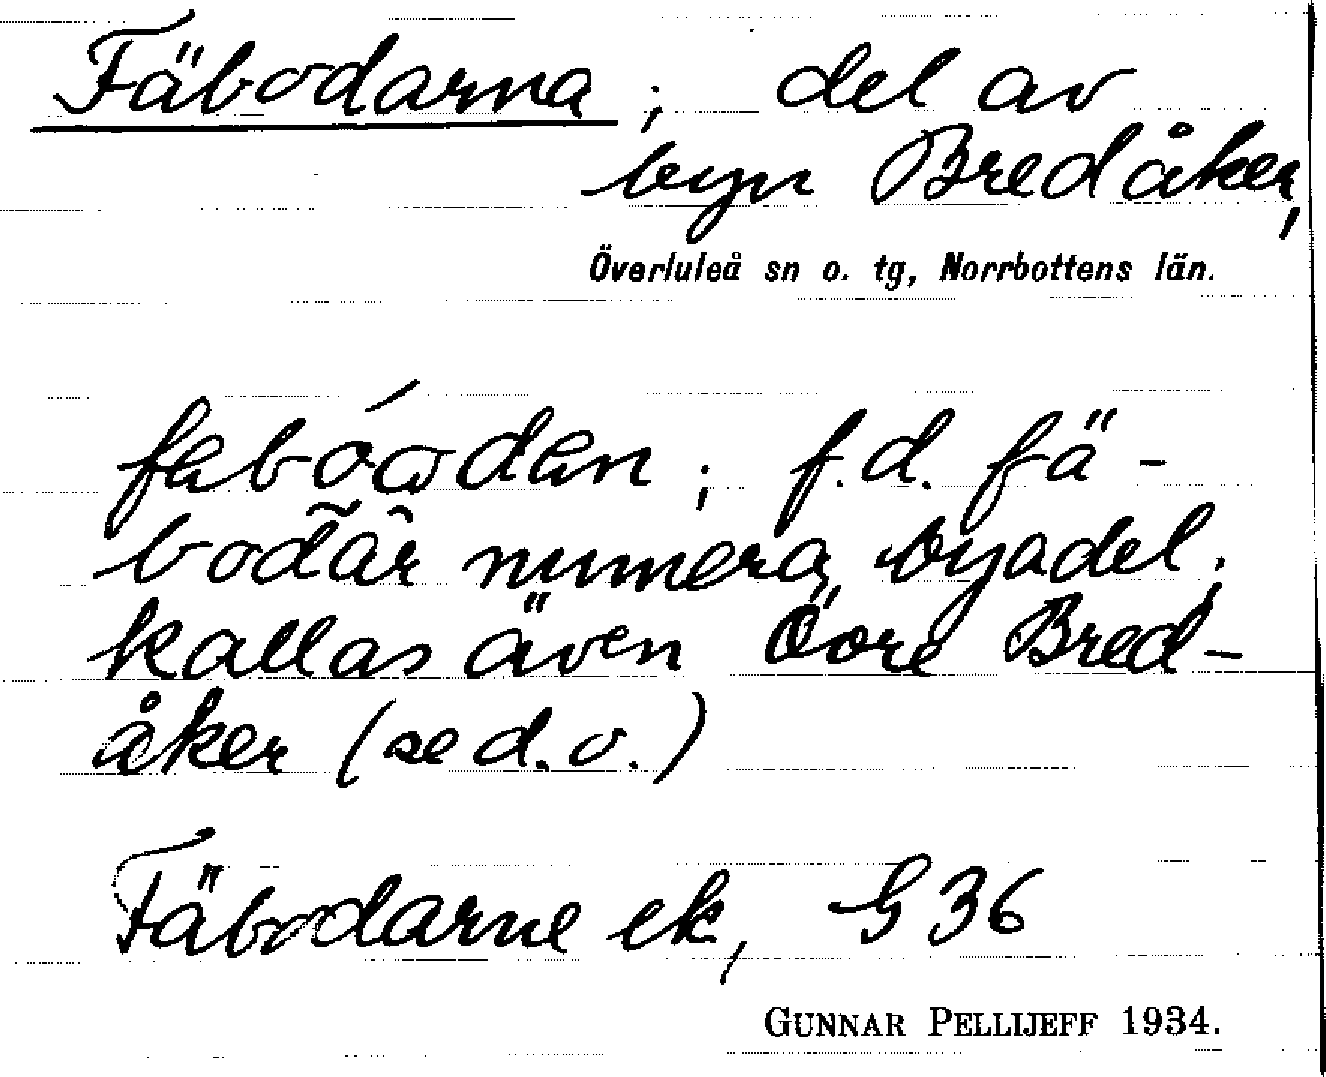 Fäbodarna; del av
byn Bredåker,
Överluleå sn o. tg, Norrbottens län.
f.d. fä-
bodar numera byadel;
kallas även Övre Bred-
åker (se d.o.)
Fäbodarne ek, G 36
GUNNAR PELLIJEFF 1934.